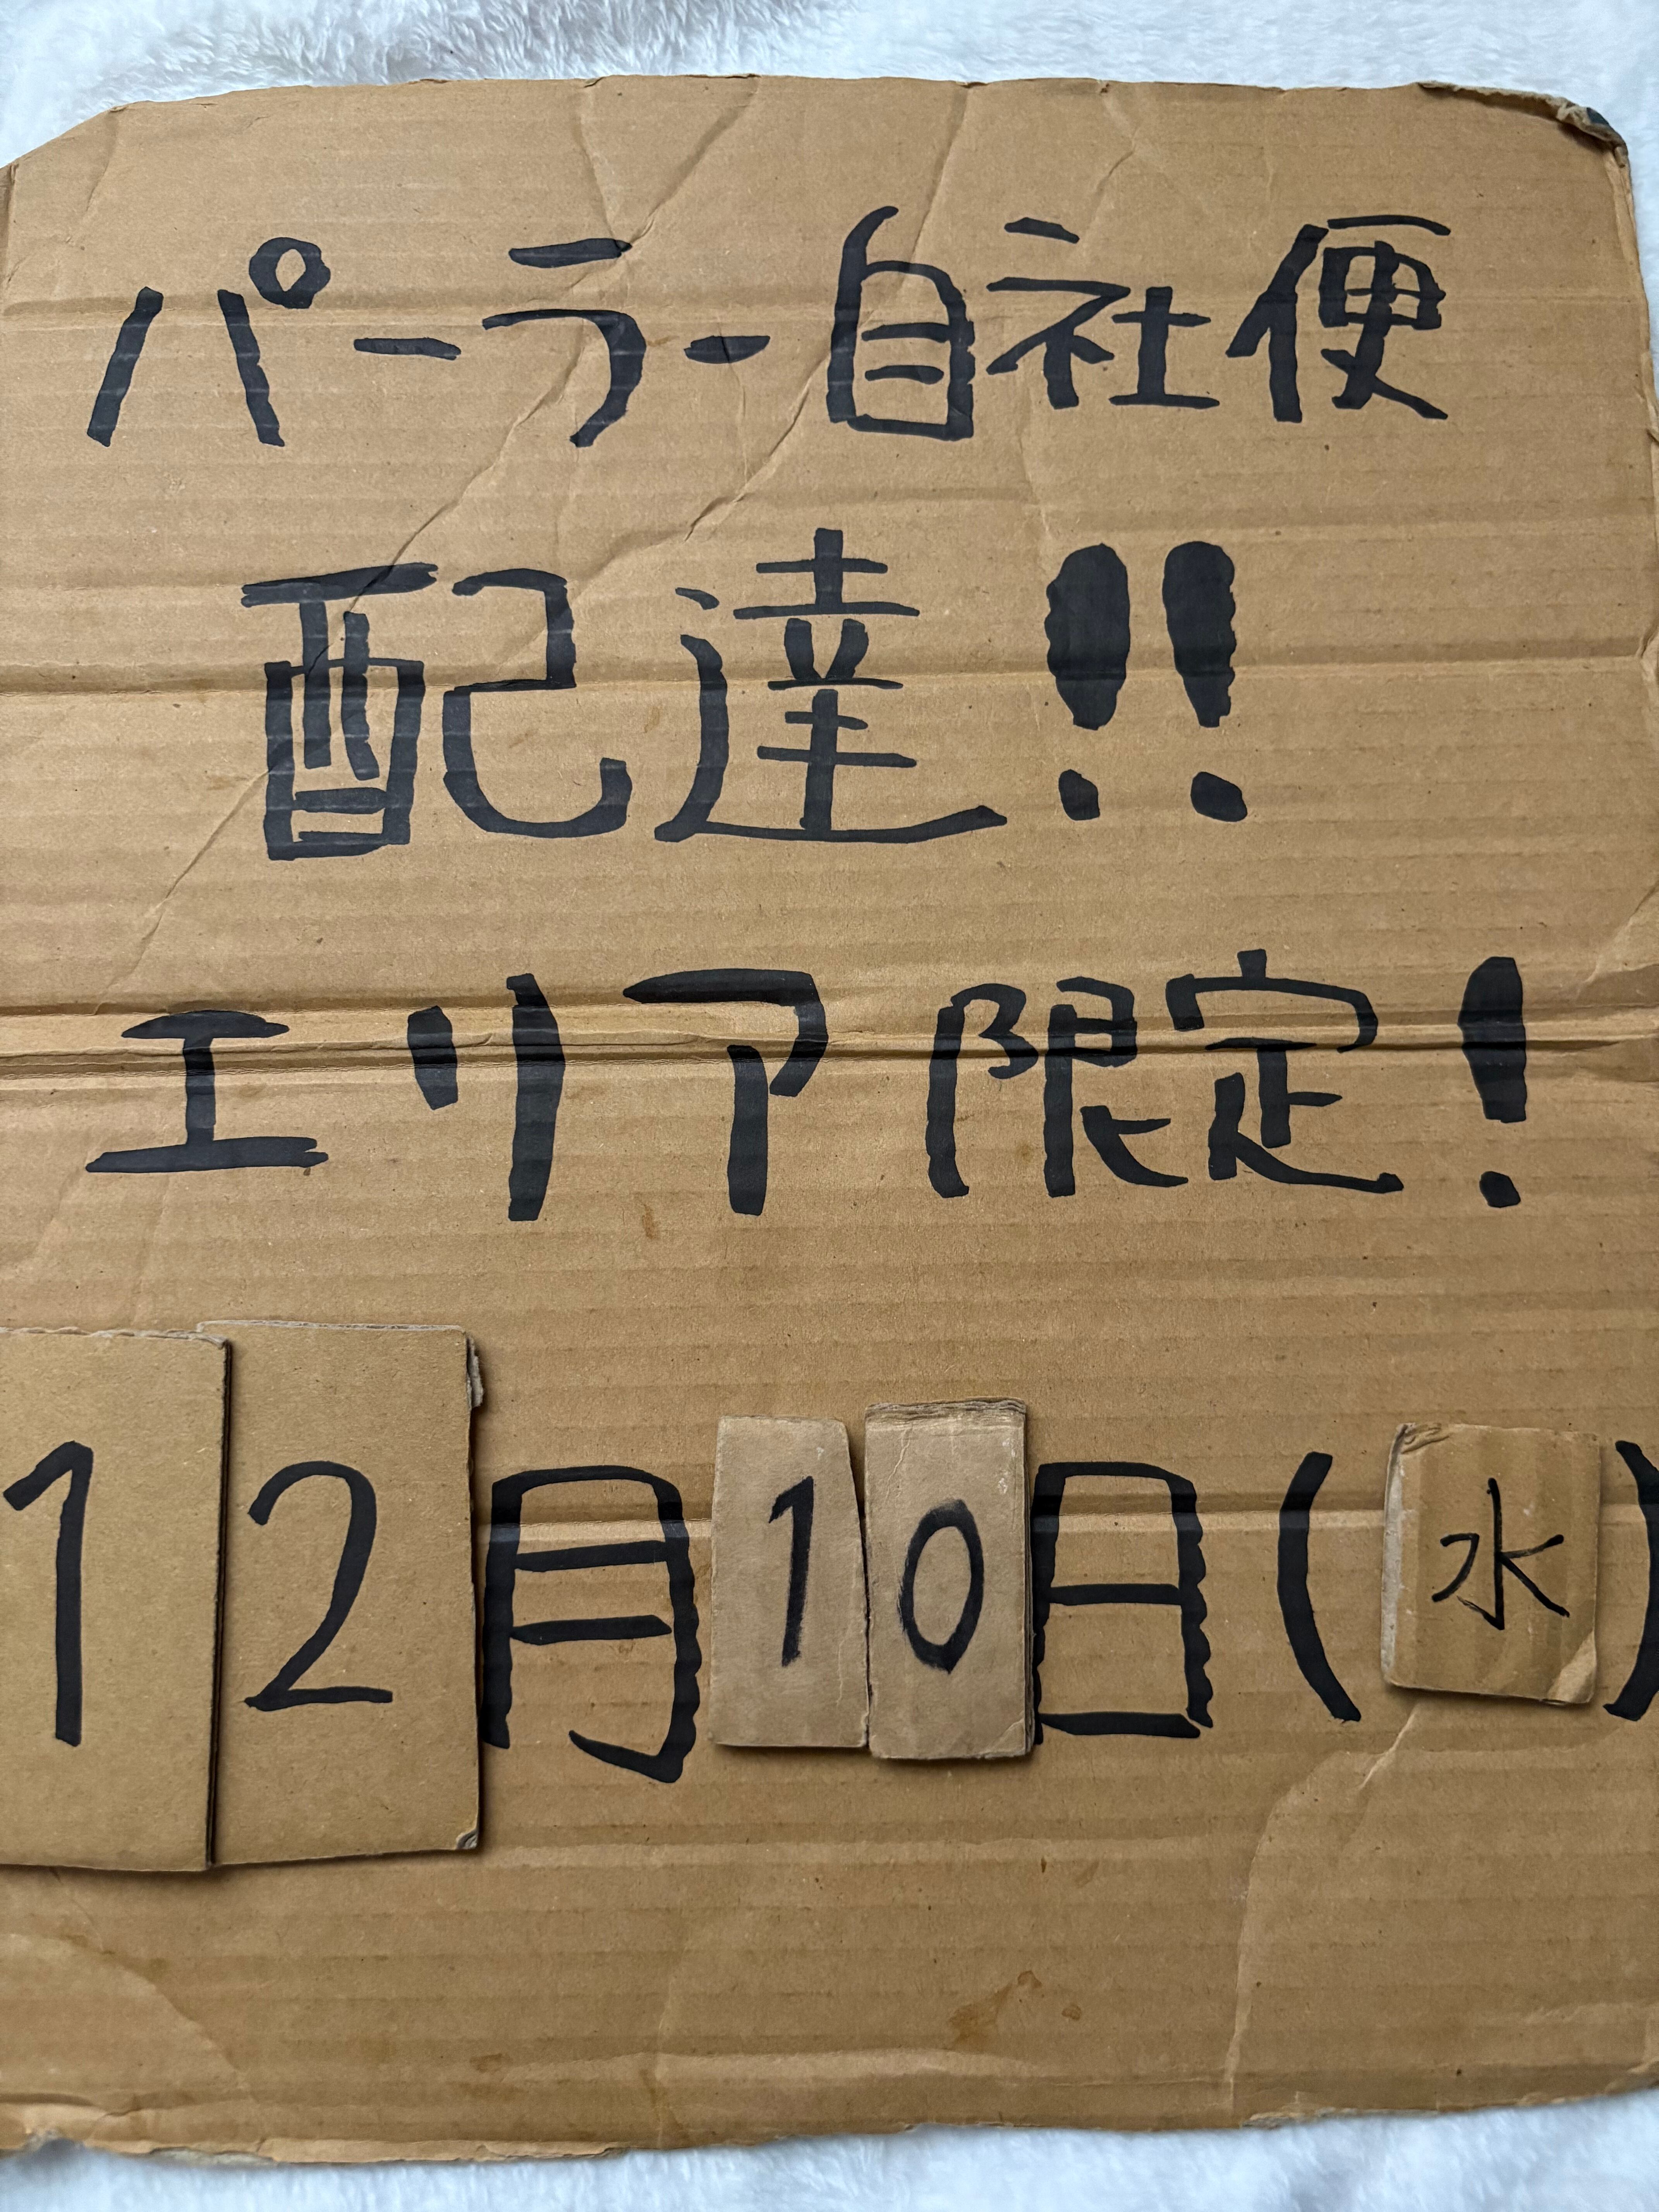 パーラー自社便
配達!!
エリア限定!
12月10日(水)